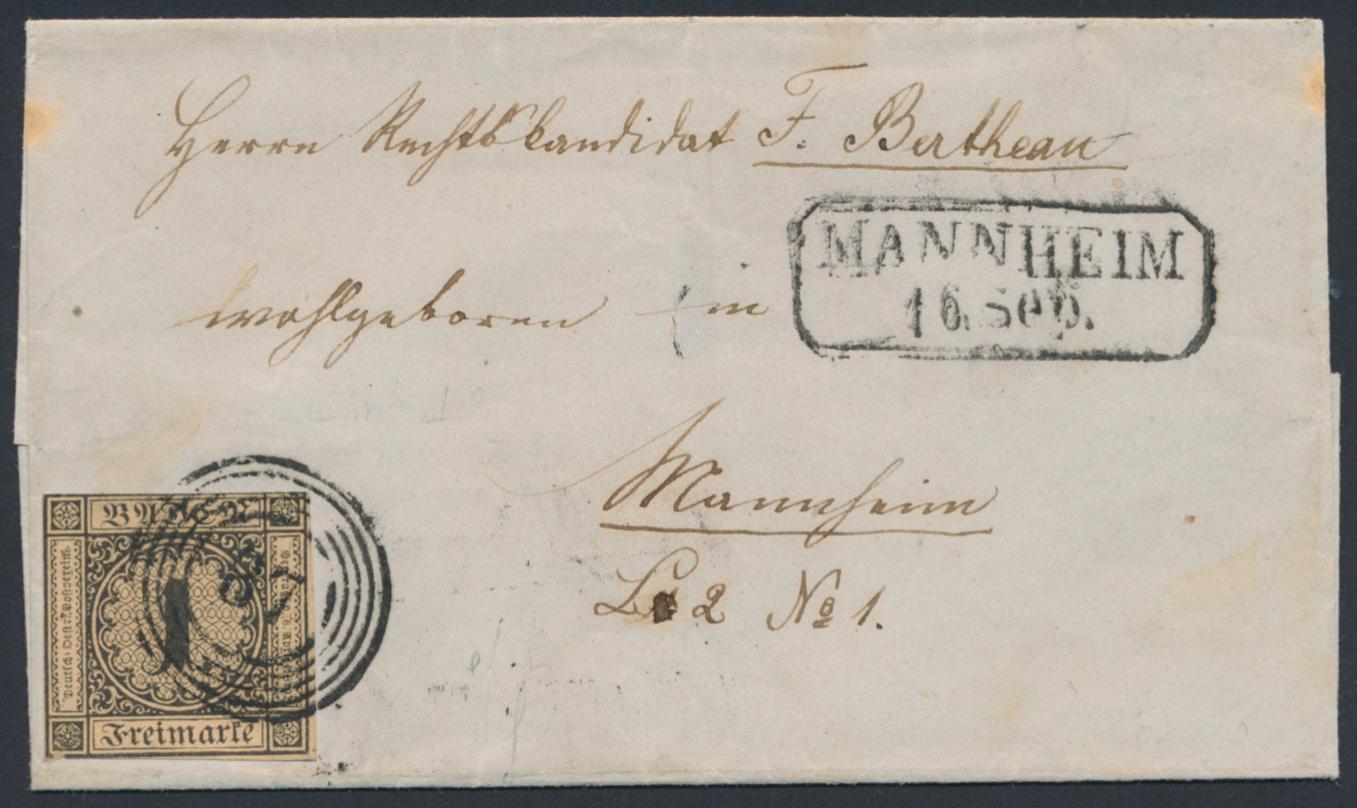 Herrn Rechtskandidat F. Bertheau
MANNHEIM
16. Sep.
wohlgeboren in
Mannheim
L 2 No 1.
BADEN
Deutsch-Oestr. Postverein
1
87
Freimarke